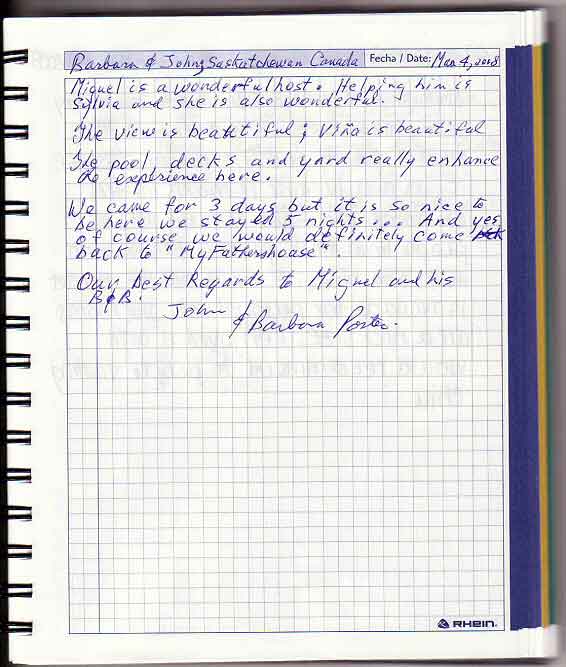 Barbara & John, Saskatchewan Canada Fecha / Date: Mar 4, 2008
Miguel is a wonderful host. Helping him is
Sylvia and she is also wonderful.
The view is beautiful; Viña is beautiful
The pool, decks and yard really enhance
the experience here.
We came for 3 days but it is so nice to
be here we stayed 5 nights... And yes
of course we would definitely come
back to "MyFathershouse".
Our best Regards to Miguel and his
B&B.
John
& Barbara Porter.
RHEIN